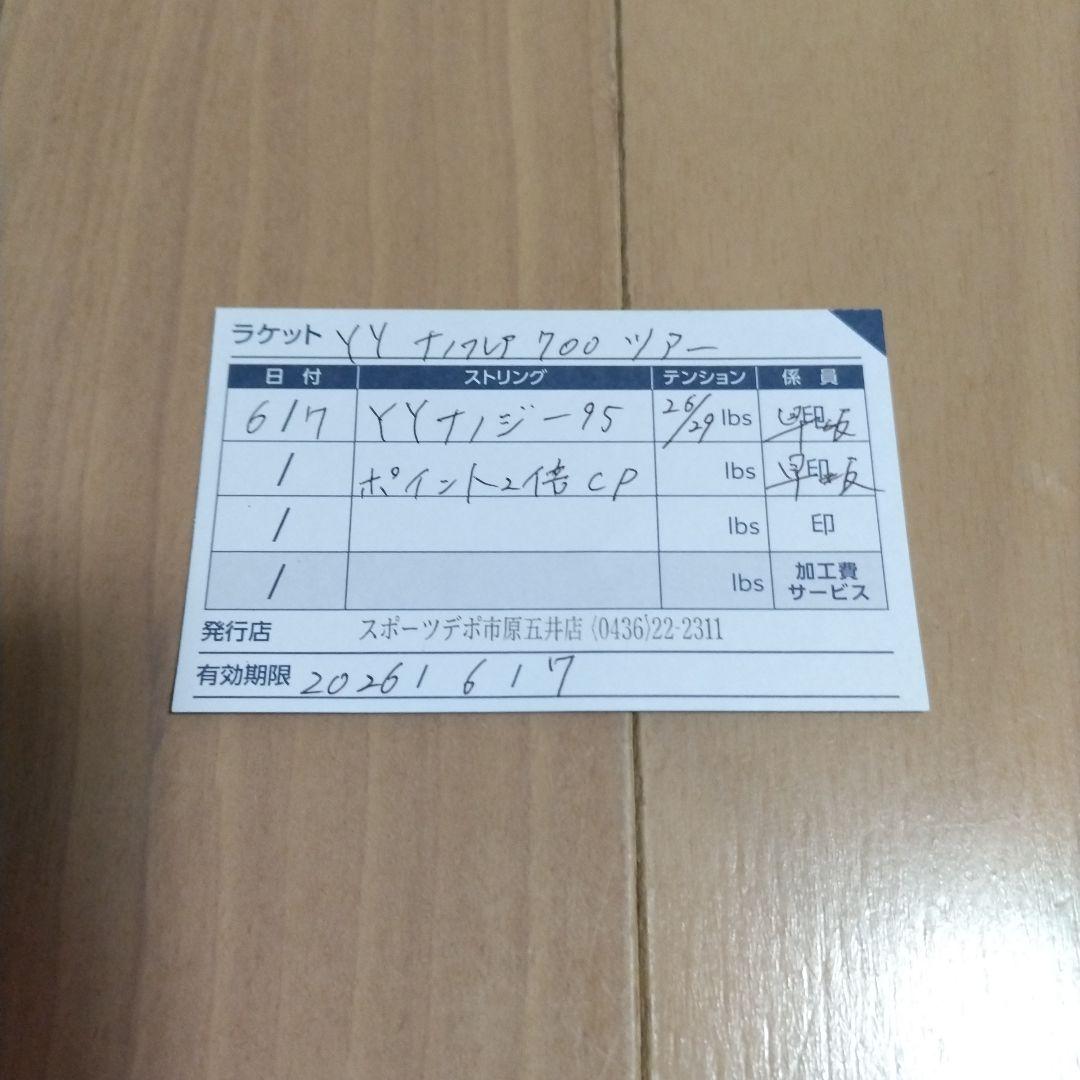 ラケット YY ナノフレア 700 ツアー
日付 ストリング テンション 係員
6/7 YYナノジー95 26/29 lbs 早坂 印
/ ポイント2倍CP lbs 早坂 印
/ lbs 印
/ lbs 加工費サービス
発行店 スポーツデポ市原五井店 (0436)22-2311
有効期限 2026/6/7